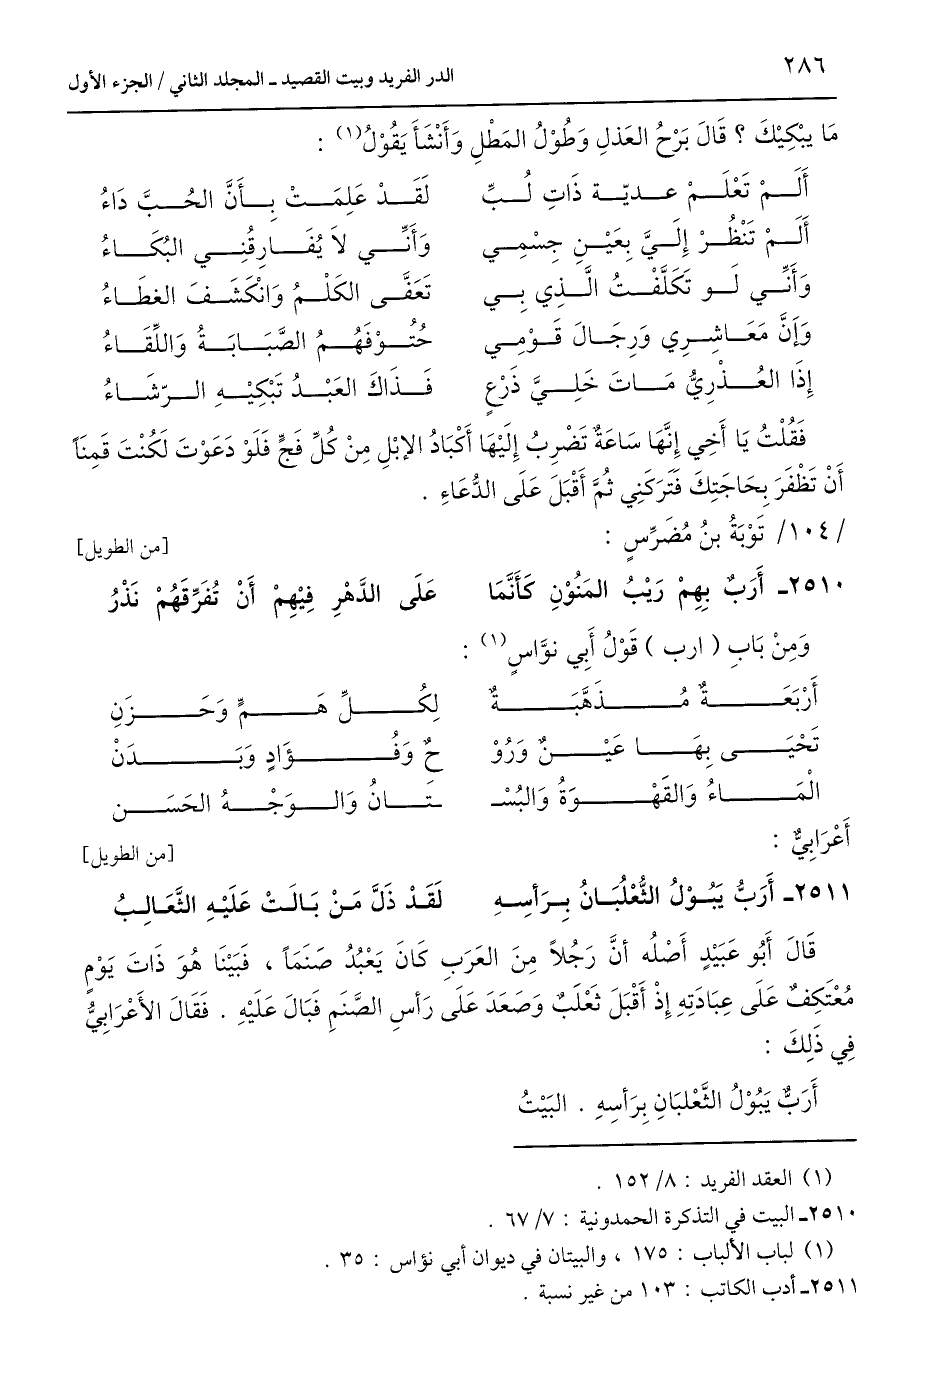 ٢٨٦
الدر الفريد وبيت القصيد ـ المجلد الثاني / الجزء الأول
مَا يبْكِيْكَ ؟ قَالَ بَرْحُ العَذلِ وَطُوْلُ المَطْلِ وَأَنْشَأَ يَقُوْلُ(١) :
أَلَمْ تَعْلَمْ عديّة ذَاتِ لُبِّ لَقَدْ عَلِمَتْ بِأَنَّ الحُبَّ دَاءُ
أَلَمْ تَنْظُرْ إِلَيَّ بِعَيْنِ جِسْمِي وَأَنِّي لاَ يُفَارِقُنِي البُكَاءُ
وَأَنِّي لَو تَكَلَّفْتُ الَّذِي بِي تَعَفَّى الكَلْمُ وَانْكَشَفَ الغطَاءُ
وَإِنَّ مَعَاشِرِي وَرِجَالَ قَوْمِي حُتُوْفَهُمُ الصَّبَابَةُ وَاللِّقَاءُ
إِذَا العُذْرِيُّ مَاتَ خَلِيَّ ذَرْعٍ فَذَاكَ العَبْدُ تَبْكِيْهِ الرّشَاءُ
فَقُلْتُ يَا أَخِي إِنَّهَا سَاعَةٌ تَضْرِبُ إِلَيْهَا أَكْبَادُ الإبْلِ مِنْ كُلِّ فَجٍّ فَلَوْ دَعَوْتَ لَكُنْتَ قَمِناً
أَنْ تَظْفَرَ بِحَاجَتِكَ فَتَرَكَنِي ثُمَّ أَقْبَلَ عَلَى الدُّعَاءِ .
/ ١٠٤/ تَوْبَةُ بنُ مُضَرِّسٍ :
[من الطويل]
٢٥١٠ـ أَرَبَّ بِهِمْ رَيْبُ المَنُوْنِ كَأَنَّمَا عَلَى الدَّهْرِ فِيْهِمْ أَنْ تُفَرِّقَهُمْ نَذْرُ
وَمِنْ بَابِ ( ارب ) قَوْلُ أَبِي نوَّاسٍ(١) :
أَرْبَعَةٌ مُذَهِّبَةٌ لِكُلِّ هَمٍّ وَحَزَنِ
تَحْيَى بِهَا عَيْنٌ وَرُوْ حٌ وَفُؤَادٍ وَبَدَنْ
الْمَاءُ وَالقَهْوَةُ وَالبُسْـ ـتَانُ وَالوَجْهُ الحَسَن
أَعْرَابِيٌّ :
[من الطويل]
٢٥١١ـ أَرَبُّ يَبُوْلُ الثُّعْلُبَانُ بِرَأسِهِ لَقَدْ ذَلَّ مَنْ بَالَتْ عَلَيْهِ الثَّعَالِبُ
قَالَ أَبُو عَبَيْدٍ أَصْلُه أنَّ رَجُلاً مِنَ العَرَبِ كَانَ يَعْبُدُ صَنَمَاً ، فَبَيْنَا هُوَ ذَاتَ يَوْمٍ
مُعْتَكِفٌ عَلَى عِبَادَتِهِ إِذْ أَقْبَلَ ثَعْلَبٌ وَصَعَدَ عَلَى رَأسِ الصَّنَمِ فَبَالَ عَلَيْهِ . فَقَالَ الأَعْرَابِيُّ
فِي ذَلِكَ :
أَرَبٌّ يَبُوْلُ الثَّعْلبَانِ بِرَأسِهِ . البَيْتُ
(١) العقد الفريد : ٨/ ١٥٢ .
٢٥١٠ـ البيت في التذكرة الحمدونية : ٧/ ٦٧ .
(١) لباب الألباب : ١٧٥ ، والبيتان في ديوان أبي نؤاس : ٣٥ .
٢٥١١ـ أدب الكاتب : ١٠٣ من غير نسبة .